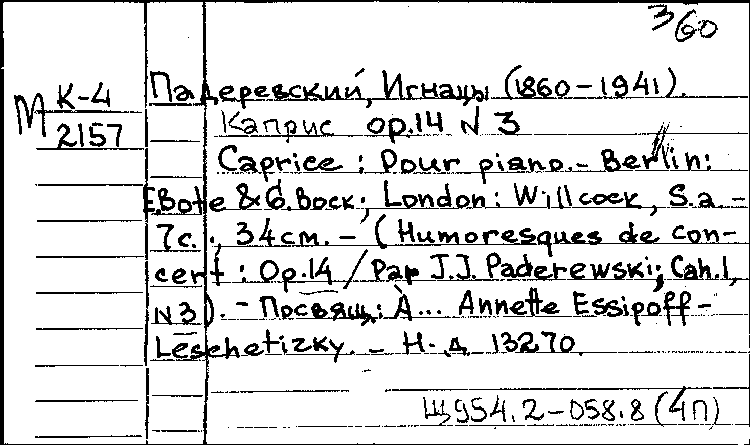 360
Падеревский, Игнацы (1860-1941).
М К-4
2157
Каприс op.14 N 3
Caprice : Pour piano.- Berlin:
E.Bote & G.Bock; London: Willcock, S.a.-
7с., 34см. - (Humoresques de con-
cert : Op.14 / Par J.J. Paderewski; Cah.1,
N3). - Посвящ.: À... Annette Essipoff-
Leschetizky. - Н.д. 13270.
Щ954.2-058.8 (4П)